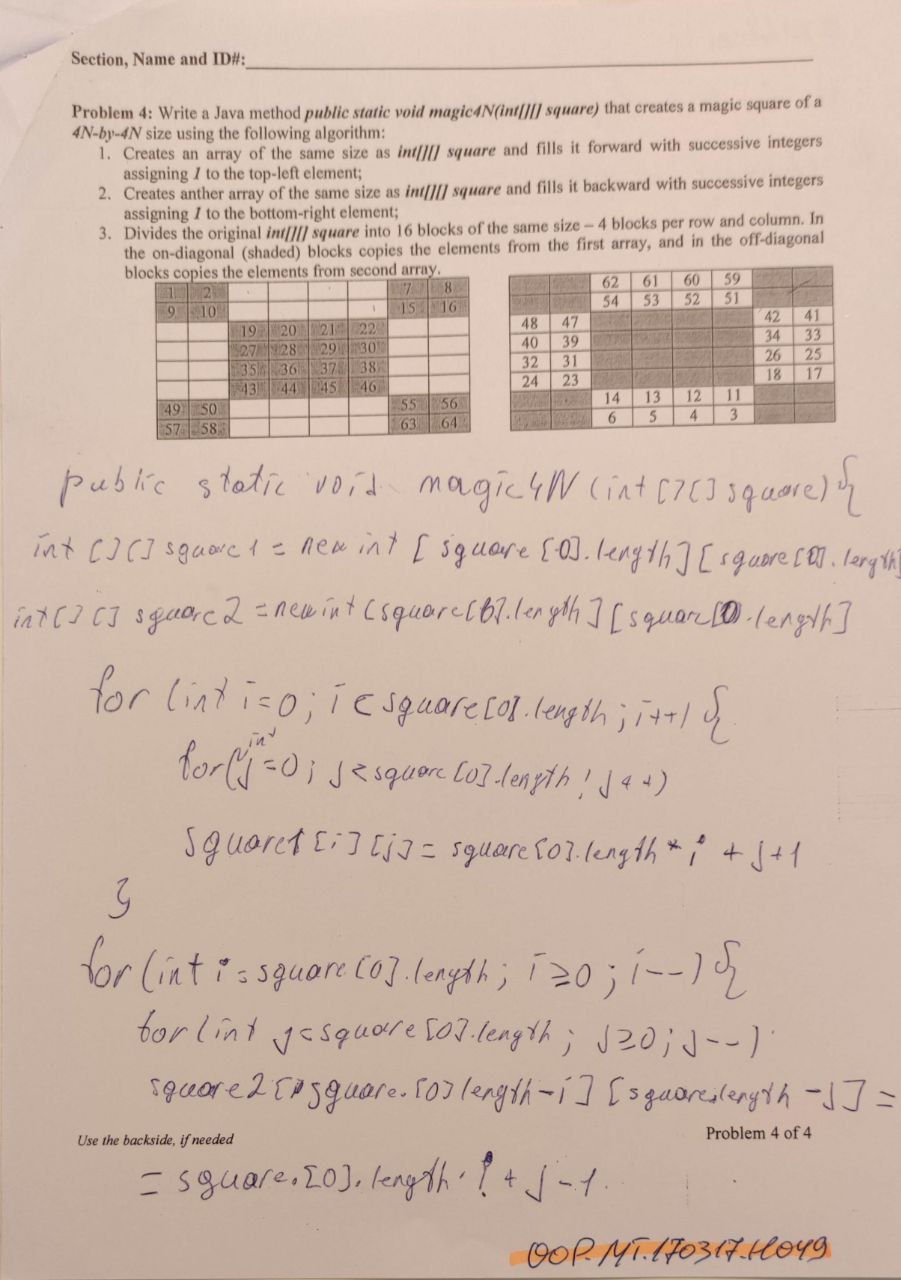 Section, Name and ID#:
Problem 4: Write a Java method public static void magic4N(int[][] square) that creates a magic square of a
4N-by-4N size using the following algorithm:
1. Creates an array of the same size as int[][] square and fills it forward with successive integers
assigning 1 to the top-left element;
2. Creates anther array of the same size as int[][] square and fills it backward with successive integers
assigning 1 to the bottom-right element;
3. Divides the original int[][] square into 16 blocks of the same size – 4 blocks per row and column. In
the on-diagonal (shaded) blocks copies the elements from the first array, and in the off-diagonal
blocks copies the elements from second array.
1 2 7 8
9 10 15 16
19 20 21 22
27 28 29 30
35 36 37 38
43 44 45 46
49 50 55 56
57 58 63 64
62 61 60 59
54 53 52 51
48 47 42 41
40 39 34 33
32 31 26 25
24 23 18 17
14 13 12 11
6 5 4 3
public static void magic4N (int [][] square) {
int [][] square1 = new int [square[0].length][square[0].length]
int[][] square2 = new int [square[0].length][square[0].length]
for (int i=0; i<square[0].length; i++) {
for(int j=0; j<square[0].length; j++)
square1 [i][j] = square[0].length * i + j+1
}
for (int i = square[0].length; i≥0; i--) {
for (int j=square[0].length; j≥0; j--)
square2 [square.[0]length-i] [square.length -j] =
Use the backside, if needed
Problem 4 of 4
= square.[0].length · i + j-1.
OOP.MT.170317.H049